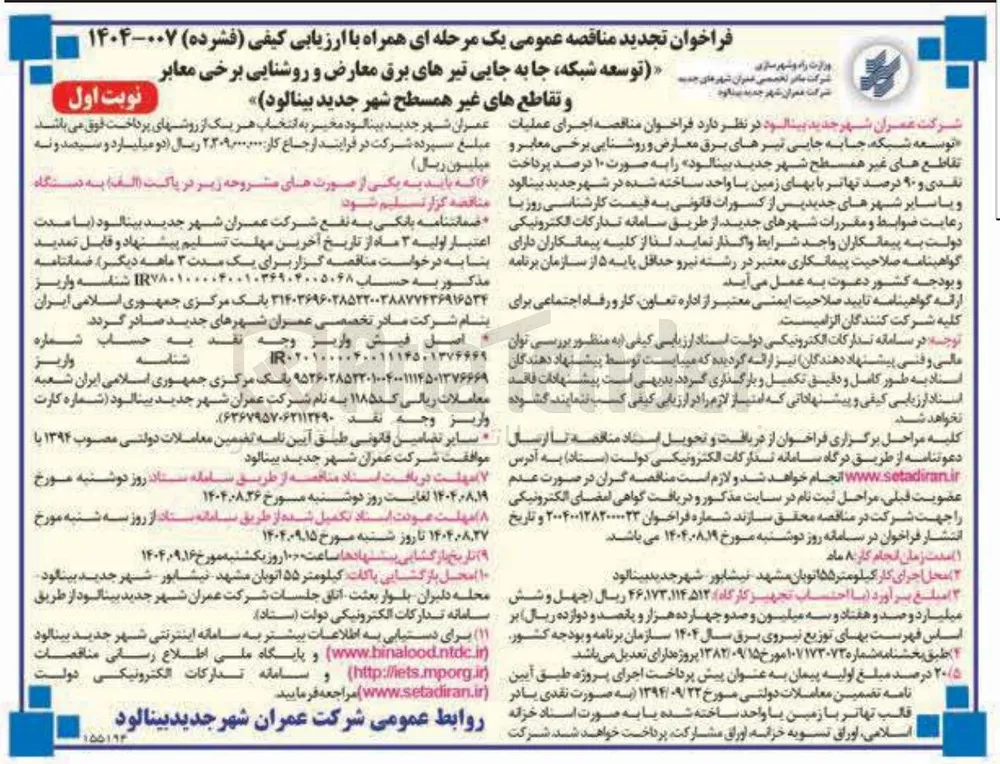 فراخوان تجدید مناقصه عمومی یک مرحله ای همراه با ارزیابی کیفی (فشرده) ۰۰۷-۱۴۰۴
«(توسعه شبکه، جا به جایی تیر های برق معارض و روشنایی برخی معابر
و تقاطع های غیر همسطح شهر جدید بینالود)»
نوبت اول
وزارت راه و شهرسازی
شرکت مادر تخصصی عمران شهرهای جدید
شرکت عمران شهر جدید بینالود
شرکت عمران شهر جدید بینالود در نظر دارد فراخوان مناقصه اجرای عملیات
«توسعه شبکه، جا به جایی تیر های برق معارض و روشنایی برخی معابر و
تقاطع های غیر همسطح شهر جدید بینالود» را به صورت ۱۰ درصد پرداخت
نقدی و ۹۰ درصد تهاتر با بهای زمین یا واحد ساخته شده در شهر جدید بینالود
و یا سایر شهر های جدید پس از کسورات قانونی به قیمت کارشناسی روز با
رعایت ضوابط و مقررات شهر های جدید، از طریق سامانه تدارکات الکترونیکی
دولت به پیمانکاران واجد شرایط واگذار نماید. لذا از کلیه پیمانکاران دارای
گواهینامه صلاحیت پیمانکاری معتبر در رشته نیرو حداقل پایه ۵ از سازمان برنامه
و بودجه کشور دعوت به عمل می آید.
ارائه گواهینامه تایید صلاحیت ایمنی معتبر از اداره تعاون، کار و رفاه اجتماعی برای
کلیه شرکت کنندگان الزامیست.
توجه: در سامانه تدارکات الکترونیکی دولت اسناد ارزیابی کیفی (به منظور بررسی توان
مالی و فنی پیشنهاد دهندگان) نیز ارائه گردیده که میبایست توسط پیشنهاد دهندگان
اسناد به طور کامل و دقیق تکمیل و بارگذاری گردد. بدیهی است پیشنهادات فاقد
اسناد ارزیابی کیفی و پیشنهاداتی که امتیاز لازم را در ارزیابی کیفی کسب ننمایند گشوده
نخواهد شد.
کلیه مراحل برگزاری فراخوان از دریافت و تحویل اسناد مناقصه تا ارسال
دعوتنامه از طریق درگاه سامانه تدارکات الکترونیکی دولت (ستاد) به آدرس
www.setadiran.ir انجام خواهد شد و لازم است مناقصه گران در صورت عدم
عضویت قبلی، مراحل ثبت نام در سایت مذکور و دریافت گواهی امضای الکترونیکی
را جهت شرکت در مناقصه محقق سازند. شماره فراخوان ۲۰۰۴۰۰۱۲۸۲۰۰۰۰۲۳ و تاریخ
انتشار فراخوان در سامانه روز دوشنبه مورخ ۱۴۰۴.۰۸.۱۹ می باشد.
۱) مدت زمان انجام کار: ۸ ماه
۲) محل اجرای کار: کیلومتر ۵۵ اتوبان مشهد - نیشابور - شهر جدید بینالود
۳) مبلغ برآورد (با احتساب تجهیز کارگاه): ۴۶,۱۷۳,۱۱۴,۵۱۲ ریال (چهل و شش
میلیارد و صد و هفتاد و سه میلیون و صد و چهارده هزار و پانصد و دوازده ریال) بر
اساس فهرست بهای توزیع نیروی برق سال ۱۴۰۴ سازمان برنامه و بودجه کشور.
۴) طبق بخشنامه شماره ۱۰۱/۱۷۳۰۷۳ مورخ ۱۳۸۲/۰۹/۱۵ پروژه دارای تعدیل می باشد.
۵) ۲۰ درصد مبلغ اولیه پیمان به عنوان پیش پرداخت اجرای پروژه طبق آیین
نامه تضمین معاملات دولتی مورخ ۱۳۹۴/۰۹/۲۲ (به صورت نقدی یا در
قالب تهاتر با زمین یا واحد ساخته شده یا به صورت اسناد خزانه
اسلامی، اوراق تسویه خزانه، اوراق مشارکت، پرداخت خواهد شد. شرکت
عمران شهر جدید بینالود مخیر به انتخاب هر یک از روشهای پرداخت فوق می باشد.
مبلغ سپرده شرکت در فرایند ارجاع کار: ۲,۳۰۹,۰۰۰,۰۰۰ ریال (دو میلیارد و سیصد و نه
میلیون ریال)
۶) که باید به یکی از صورت های مشروحه زیر در پاکت (الف) به دستگاه
مناقصه گزار تسلیم شود:
* ضمانتنامه بانکی به نفع شرکت عمران شهر جدید بینالود (با مدت
اعتبار اولیه ۳ ماه از تاریخ آخرین مهلت تسلیم پیشنهاد و قابل تمدید
بنا به درخواست مناقصه گزار برای یک مدت ۳ ماهه دیگر). ضمانتنامه
مذکور به حساب IR۷۸۰۱۰۰۰۰۴۰۰۱۰۳۶۹۰۴۰۰۵۰۶۸ شناسه واریز
۳۱۴۰۳۶۹۶۰۲۸۵۲۲۰۰۳۸۸۷۷۴۳۶۹۱۶۵۳۴ بانک مرکزی جمهوری اسلامی ایران
بنام شرکت مادر تخصصی عمران شهرهای جدید صادر گردد.
* اصل فیش واریز وجه نقد به حساب شماره
IR۰۲۰۱۰۰۰۰۴۰۰۱۱۱۴۵۰۱۳۷۶۶۶۹ شناسه واریز
۹۵۲۶۰۲۸۵۲۲۰۱۰۰۴۰۰۱۱۱۴۵۰۱۳۷۶۶۶۹ بانک مرکزی جمهوری اسلامی ایران شعبه
معاملات ریالی کد ۱۱۸۵ به نام شرکت عمران شهر جدید بینالود (شماره کارت
واریز وجه نقد ۶۳۶۷۹۵۷۰۶۲۱۱۳۴۹۰).
* سایر تضامین قانونی طبق آیین نامه تضمین معاملات دولتی مصوب ۱۳۹۴ با
موافقت شرکت عمران شهر جدید بینالود
۷) مهلت دریافت اسناد مناقصه از طریق سامانه ستاد: روز دوشنبه مورخ
۱۴۰۴.۰۸.۱۹ لغایت روز دوشنبه مورخ ۱۴۰۴.۰۸.۲۶
۸) مهلت عودت اسناد تکمیل شده از طریق سامانه ستاد: از روز سه شنبه مورخ
۱۴۰۴.۰۸.۲۷ تا روز شنبه مورخ ۱۴۰۴.۰۹.۱۵
۹) تاریخ بازگشایی پیشنهادها: ساعت ۱۰:۰۰ روز یکشنبه مورخ ۱۴۰۴.۰۹.۱۶
۱۰) محل بازگشایی پاکات: کیلومتر ۵۵ اتوبان مشهد - نیشابور - شهر جدید بینالود-
محله دلبران - بلوار بعثت - اتاق جلسات شرکت عمران شهر جدید بینالود از طریق
سامانه تدارکات الکترونیکی دولت (ستاد).
۱۱) برای دستیابی به اطلاعات بیشتر به سامانه اینترنتی شهر جدید بینالود
(www.binalood.ntdc.ir) و پایگاه ملی اطلاع رسانی مناقصات
(http://iets.mporg.ir) و سامانه تدارکات الکترونیکی دولت
(www.setadiran.ir) مراجعه فرمایید.
روابط عمومی شرکت عمران شهر جدید بینالود
۱۵۵۱۹۳